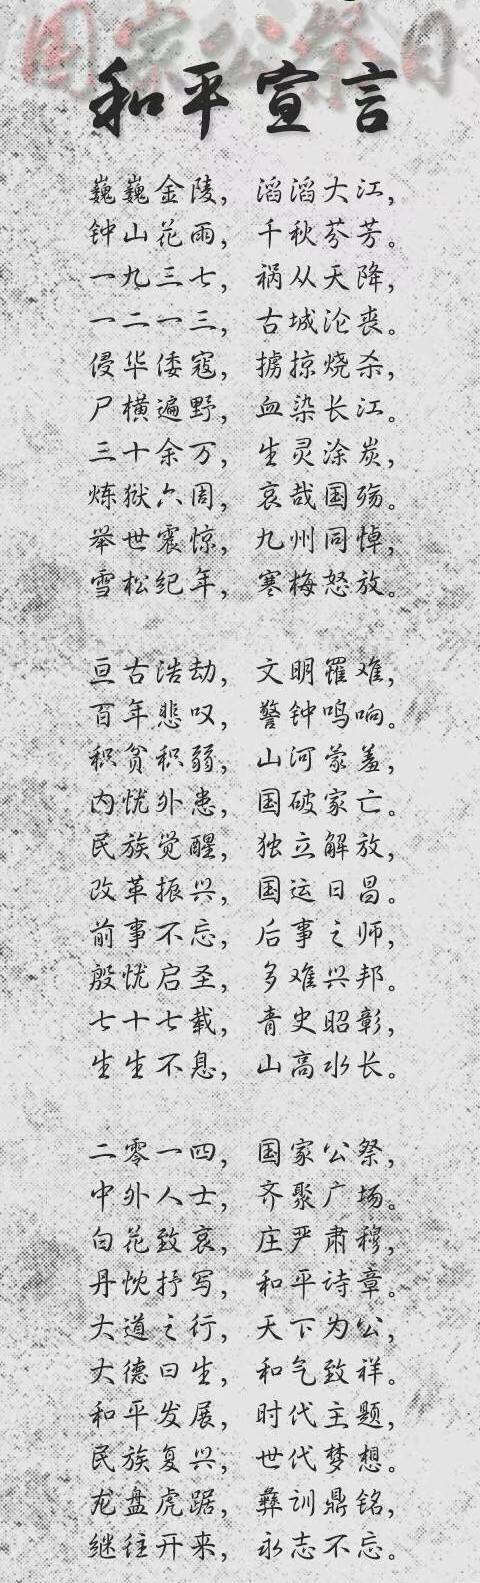 国家公祭日
和平宣言
巍巍金陵，滔滔大江，
钟山花雨，千秋芬芳。
一九三七，祸从天降，
一二一三，古城沦丧。
侵华倭寇，掳掠烧杀，
尸横遍野，血染长江。
三十余万，生灵涂炭，
炼狱六周，哀哉国殇。
举世震惊，九州同悼，
雪松纪年，寒梅怒放。
亘古浩劫，文明罹难，
百年悲叹，警钟鸣响。
积贫积弱，山河蒙羞，
内忧外患，国破家亡。
民族觉醒，独立解放，
改革振兴，国运日昌。
前事不忘，后事之师，
殷忧启圣，多难兴邦。
七十七载，青史昭彰，
生生不息，山高水长。
二零一四，国家公祭，
中外人士，齐聚广场。
白花致哀，庄严肃穆，
丹忱抒写，和平诗章。
大道之行，天下为公，
大德曰生，和气致祥。
和平发展，时代主题，
民族复兴，世代梦想。
龙盘虎踞，彝训鼎铭，
继往开来，永志不忘。